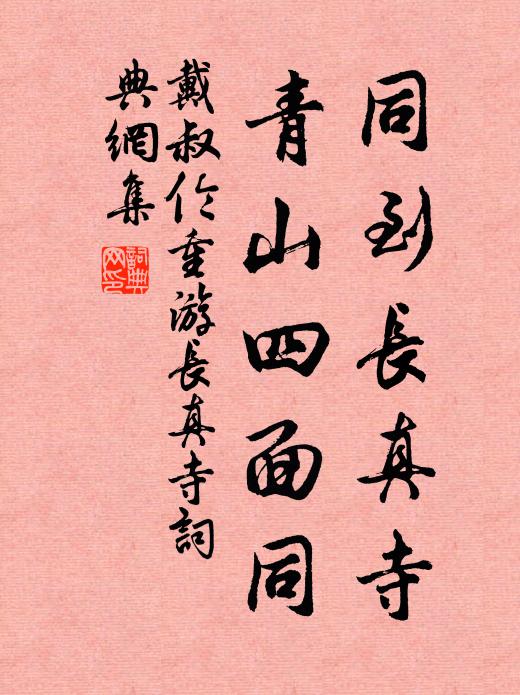 同到長真寺
青山四面同
戴叔伦重游長真寺詞
典網集
詞典
网印